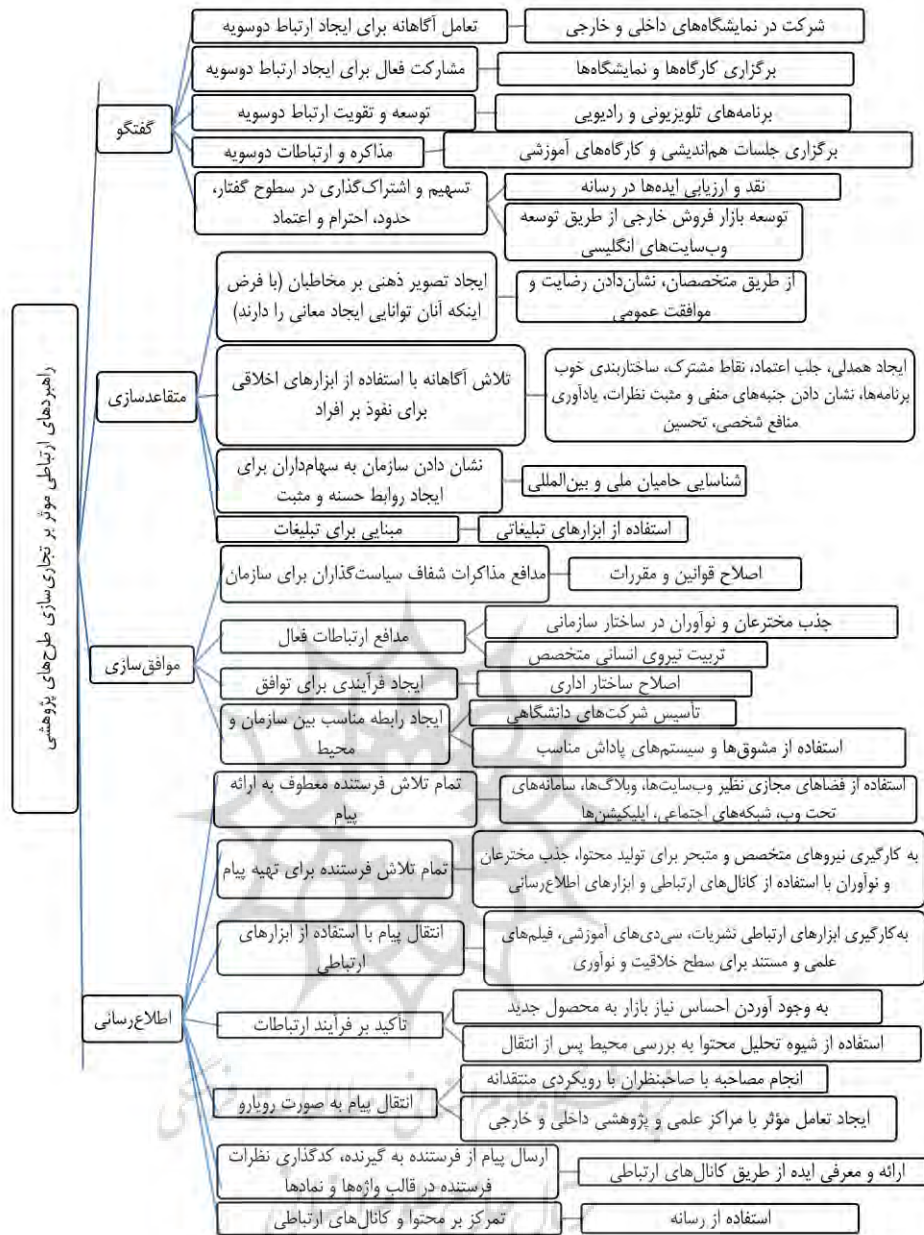 راهبردهای ارتباطی موثر بر تجاری‌سازی طرح‌های پژوهشی
گفتگو
تعامل آگاهانه برای ایجاد ارتباط دوسویه
شرکت در نمایشگاه‌های داخلی و خارجی
مشارکت فعال برای ایجاد ارتباط دوسویه
برگزاری کارگاه‌ها و نمایشگاه‌ها
توسعه و تقویت ارتباط دوسویه
برنامه‌های تلویزیونی و رادیویی
مذاکره و ارتباطات دوسویه
برگزاری جلسات هم‌اندیشی و کارگاه‌های آموزشی
تسهیم و اشتراک‌گذاری در سطوح گفتار،
حدود، احترام و اعتماد
نقد و ارزیابی ایده‌ها در رسانه
توسعه بازار فروش خارجی از طریق توسعه
وب‌سایت‌های انگلیسی
متقاعدسازی
ایجاد تصویر ذهنی بر مخاطبان (با فرض
اینکه آنان توانایی ایجاد معانی را دارند)
از طریق متخصصان، نشان‌دادن رضایت و
موافقت عمومی
تلاش آگاهانه با استفاده از ابزارهای اخلاقی
برای نفوذ بر افراد
ایجاد همدلی، جلب اعتماد، نقاط مشترک، ساختاربندی خوب
برنامه‌ها، نشان دادن جنبه‌های منفی و مثبت نظرات، یادآوری
منافع شخصی، تحسین
نشان دادن سازمان به سهام‌داران برای
ایجاد روابط حسنه و مثبت
شناسایی حامیان ملی و بین‌المللی
مبنایی برای تبلیغات
استفاده از ابزارهای تبلیغاتی
موافق‌سازی
مدافع مذاکرات شفاف سیاست‌گذاران برای سازمان
اصلاح قوانین و مقررات
مدافع ارتباطات فعال
جذب مخترعان و نوآوران در ساختار سازمانی
تربیت نیروی انسانی متخصص
ایجاد فرآیندی برای توافق
اصلاح ساختار اداری
ایجاد رابطه مناسب بین سازمان و
محیط
تأسیس شرکت‌های دانشگاهی
استفاده از مشوق‌ها و سیستم‌های پاداش مناسب
اطلاع‌رسانی
تمام تلاش فرستنده معطوف به ارائه
پیام
استفاده از فضاهای مجازی نظیر وب‌سایت‌ها، وبلاگ‌ها، سامانه‌های
تحت وب، شبکه‌های اجتماعی، اپلیکیشن‌ها
تمام تلاش فرستنده برای تهیه پیام
به کارگیری نیروهای متخصص و متبحر برای تولید محتوا، جذب مخترعان
و نوآوران با استفاده از کانال‌های ارتباطی و ابزارهای اطلاع‌رسانی
انتقال پیام با استفاده از ابزارهای
ارتباطی
به‌کارگیری ابزارهای ارتباطی نشریات، سی‌دی‌های آموزشی، فیلم‌های
علمی و مستند برای سطح خلاقیت و نوآوری
تأکید بر فرآیند ارتباطات
به وجود آوردن احساس نیاز بازار به محصول جدید
استفاده از شیوه تحلیل محتوا به بررسی محیط پس از انتقال
انتقال پیام به صورت رویارو
انجام مصاحبه با صاحبنظران با رویکردی منتقدانه
ایجاد تعامل مؤثر با مراکز علمی و پژوهشی داخلی و خارجی
ارسال پیام از فرستنده به گیرنده، کدگذاری نظرات
فرستنده در قالب واژه‌ها و نمادها
ارائه و معرفی ایده از طریق کانال‌های ارتباطی
تمرکز بر محتوا و کانال‌های ارتباطی
استفاده از رسانه